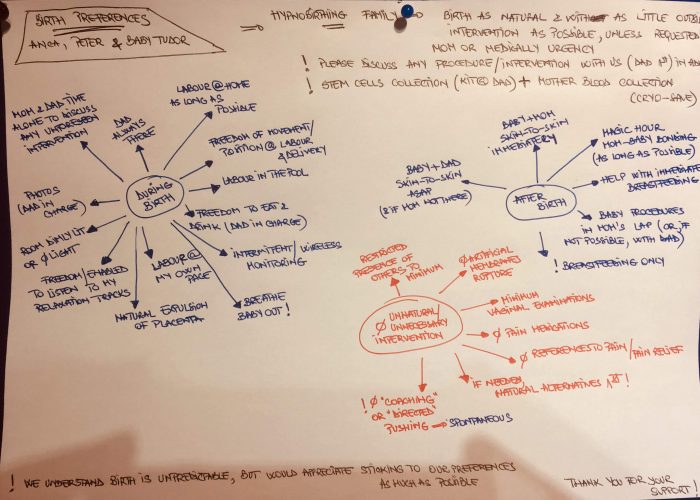 BIRTH PREFERENCES
ANCA, PETER & BABY TUDOR
=> HYPNOBIRTHING FAMILY => BIRTH AS NATURAL & WITH AS LITTLE OUTSIDE
INTERVENTION AS POSSIBLE, UNLESS REQUESTED
MOM OR MEDICALLY URGENCY
! PLEASE DISCUSS ANY PROCEDURE/INTERVENTION WITH US (DAD 1st) IN
! STEM CELLS COLLECTION (KIT@DAD) + MOTHER BLOOD COLLECTION
(CRYO-SAVE)
DURING
BIRTH
MOM & DAD TIME
ALONE TO DISCUSS
ANY UNFORESEEN
INTERVENTION
DAD
ALWAYS
THERE
LABOUR @ HOME
AS LONG AS
POSSIBLE
FREEDOM OF MOVEMENT/
POSITION @ LABOUR
& DELIVERY
LABOUR IN THE POOL
FREEDOM TO EAT &
DRINK (DAD IN CHARGE)
INTERMITENT/WIRELESS
MONITORING
BREATHE
BABY OUT!
LABOUR @
MY OWN
PACE
NATURAL EXPULSION
OF PLACENTA
FREEDOM/ENABLED
TO LISTEN TO MY
RELAXATION TRACKS
ROOM DIMLY LIT
OR Ø LIGHT
PHOTOS
(DAD IN
CHARGE)
AFTER
BIRTH
BABY+DAD
SKIN-TO-SKIN
ASAP
(& IF MOM NOT THERE)
BABY+MOM
SKIN-TO-SKIN
IMMEDIATELY
MAGIC HOUR
MOM-BABY BONDING
(AS LONG AS POSSIBLE)
HELP WITH IMMEDIATE
BREASTFEEDING
BABY PROCEDURES
IN MOM'S LAP (OR IF
NOT POSSIBLE, WITH DAD)
! BREASTFEEDING ONLY
Ø UNNATURAL/
UNNECESSARY
INTERVENTION
RESTRICTED
PRESENCE OF
OTHERS TO MINIMUM
Ø ARTIFICIAL
MEMBRANES
RUPTURE
MINIMUM
VAGINAL EXAMINATIONS
Ø PAIN MEDICATIONS
Ø REFERENCES TO PAIN/PAIN RELIEF
IF NEEDED,
NATURAL ALTERNATIVES 1st!
! Ø "COACHING"
OR "DIRECTED"
PUSHING → SPONTANEOUS
! WE UNDERSTAND BIRTH IS UNPREDICTABLE, BUT WOULD APPRECIATE STICKING TO OUR PREFERENCES
AS MUCH AS POSSIBLE
THANK YOU FOR YOUR
SUPPORT!